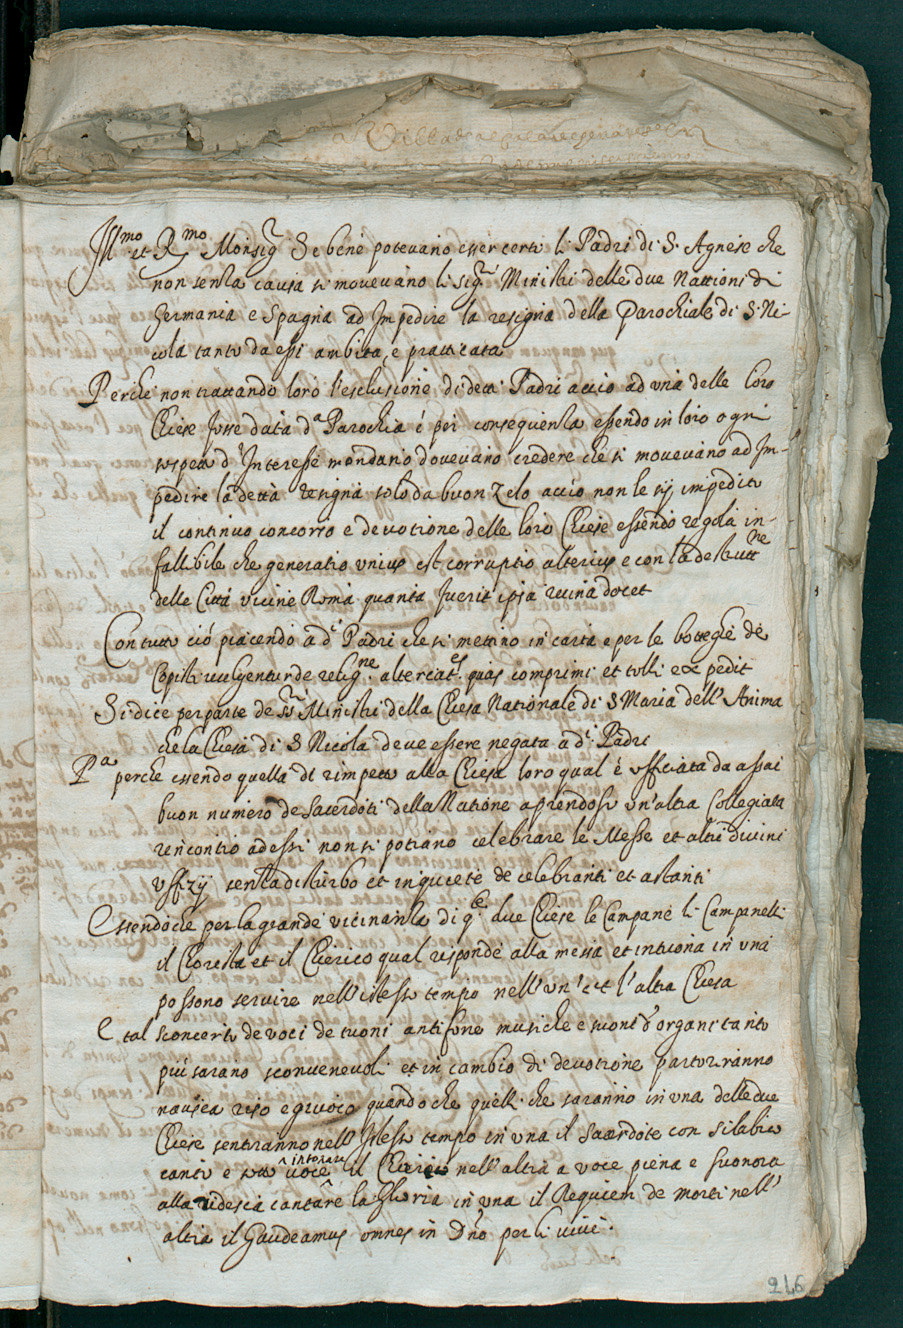 Ill.mo et R.mo Monsig.r Se bene potevano esser certi li Padri di S. Agnese che
non senza causa si movevano li sig.ri Ministri delle due Nattioni di
Germania e Spagna ad Impedire la resigna della Parochiale di S. Ni-
cola tanto da essi ambita, e pratticata
Perche non trattando loro l'esclusione di detti Padri accio ad una delle loro
Chiese fosse data d.a Parochia é per consequenza essendo in loro ogni
sospetto d'Interesse mondano dovevano credere che si movevano ad Im-
pedire la detta resigna solo da buon Zelo accio non le sij impedito
il continuo concorso e devotione delle loro Chiese essendo regola in-
fallibile che generatio unius est corruptio alterius e con la destrutt.ne
delle Cittá vicine Roma quanta fuerit ipsa ruina docet
Con tutto ció piacendo a d.i Padri che si mettino in carta e per le botteghe de
Copisti vulgentur de relig.ne altercat.es quas comprimi et tolli expedit
Si dice per parte de SS.ri Ministri della Chiesa Nationale di S Maria dell'Anima
che la Chiesa di S Nicola deve essere negata a d.i Padri
P.a perche essendo quella di rimpetto alla Chiesa loro qual é ufficiata da assai
buon numero de Sacerdoti della Natione aprendosi un'altra Collegiata
rincontro ad essi non si potrano celebrare le Messe et altri divini
uffizij senza disturbo et inquiete de celebranti et astanti
Essendo che per la grande vicinanza di q.e due Chiese le Campane li Campanelli
il Chorista et il Chierico qual risponde alla messa et intuona in una
possono servire nell'istesso tempo nell'un'et l'altra Chiesa
E tal sconcerto de voci de tuoni antifone musiche e suoni d'organi tanto
piú sarano sconvenevoli et in cambio di devotione parturiranno
nausea riso e giuoco quando che quelli che saranno in una delle due
Chiese sentiranno nell'Istesso tempo in una il Sacerdote con silabico
canto e voce intonare il Chierico nell'altra a voce piena e suonora
alla cantare la Gloria in una il Requiem de morti nell'
altra il Gaudeamus omnes in Dño per li vivi.
246